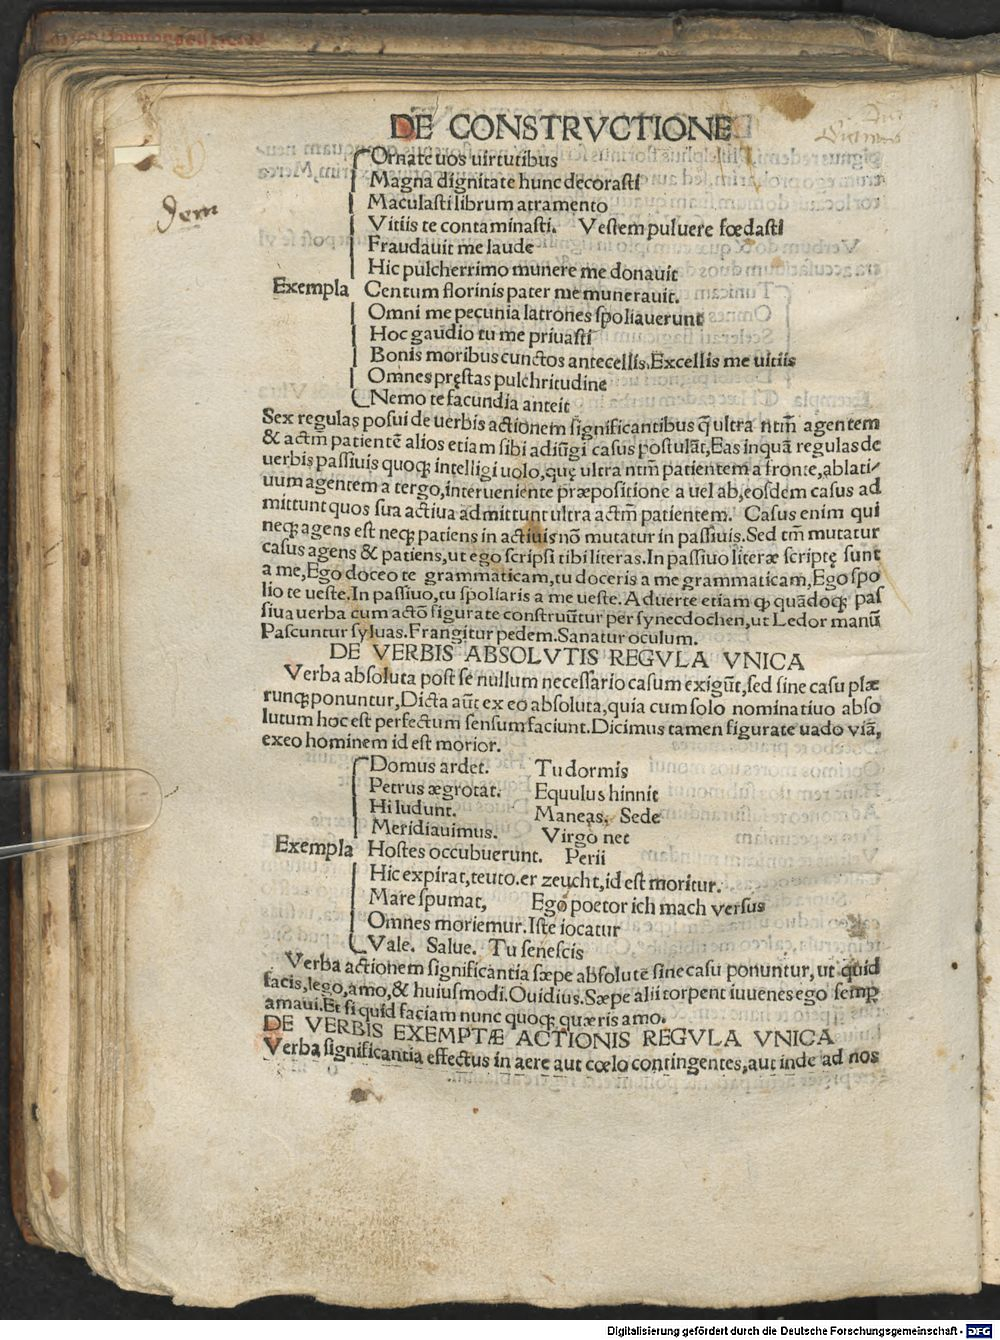 DE CONSTRVCTIONE
Ornate uos uirtutibus
Magna dignitate hunc decorasti
Maculasti librum atramento
Vitiis te contaminasti. Vestem puluere fœdasti
Fraudauit me laude
Hic pulcherrimo munere me donauit
Exempla Centum florinis pater me munerauit.
Omni me pecunia latrones spoliauerunt
Hoc gaudio tu me priuasti
Bonis moribus cunctos antecellis. Excellis me uitiis
Omnes pręstas pulchritudine
Nemo te facundia anteit
Sex regulas posui de uerbis actionem significantibus q̃ ultra ntm̃ agentem
& actm̃ patientē alios etiam sibi adiũgi casus postulãt, Eas inquã regulas de
uerbis passiuis quoqꝫ intelligi uolo, quę ultra ntm̃ patientem a fronte, ablati⸗
uum agentem a tergo, interueniente præpositione a uel ab, eosdem casus ad
mittunt quos sua actiua admittunt ultra actm̃ patientem. Casus enim qui
neqꝫ agens est neqꝫ patiens in actiuis nõ mutatur in passiuis. Sed tm̃ mutatur
casus agens & patiens, ut ego scripsi tibi literas. In passiuo literæ scriptę sunt
a me, Ego doceo te grammaticam, tu doceris a me grammaticam, Ego spo
lio te ueste. In passiuo, tu spoliaris a me ueste. Aduerte etiam ꝙ quãdoqꝫ pas
siua uerba cum actõ figurate construũtur per synecdochen, ut Ledor manũ
Pascuntur syluas. Frangitur pedem. Sanatur oculum.
DE VERBIS ABSOLVTIS REGVLA VNICA
Verba absoluta post se nullum necessario casum exigũt, sed sine casu plæ
runqꝫ ponuntur, Dicta aũt ex eo absoluta, quia cum solo nominatiuo abso
lutum hoc est perfectum sensum faciunt. Dicimus tamen figurate uado viã,
exeo hominem id est morior.
Domus ardet. Tu dormis
Petrus ægrotat. Equulus hinnit
Hi ludunt. Maneas. Sede
Meridiauimus. Virgo net
Exempla Hostes occubuerunt. Perii
Hic expirat, teuto. er zeucht, id est moritur.
Mare spumat, Ego poetor ich mach versus
Omnes moriemur. Iste iocatur
Vale. Salue. Tu senescis
Verba actionem significantia sæpe absolute sine casu ponuntur, ut quid
facis, lego, amo, & huiusmodi. Ouidius. Sæpe alii torpent iuuenes ego semꝑ
amaui. Et si quid faciam nunc quoqꝫ quæris amo.
DE VERBIS EXEMPTÆ ACTIONIS REGVLA VNICA
Verba significantia effectus in aere aut cœlo contingentes, aut inde ad nos
Digitalisierung gefördert durch die Deutsche Forschungsgemeinschaft - DFG